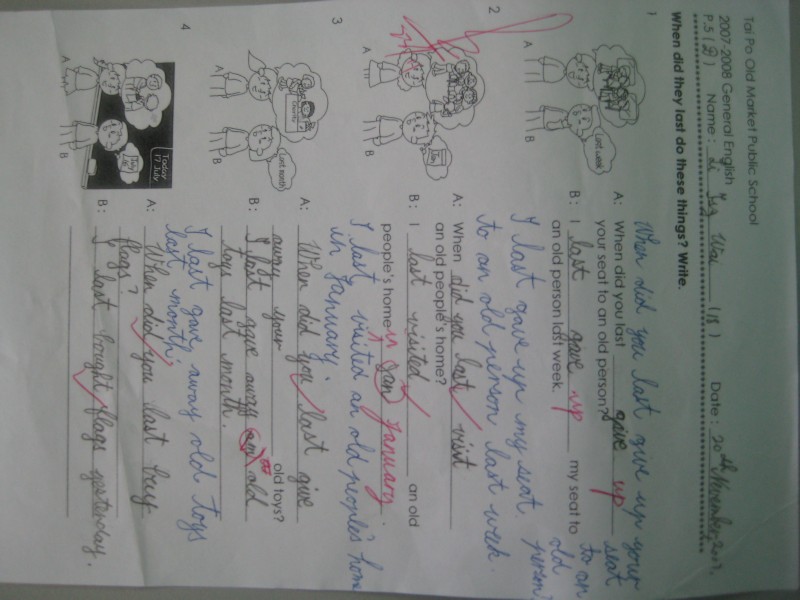 Tai Po Old Market Public School
2007-2008 General English
P.5 (D) Name: Wai (18) Date: 20th November, 2007.
When did they last do these things? Write.
1
When did you last give up your seat to an old person?
A: When did you last gave up
your seat to an old person?
B: I last gave up my seat to
an old person last week.
I last gave up my seat
to an old person last week.
Last week
A
B
2
A: When did you last visit
an old people's home?
B: I last visited an old
people's home in Jan January.
I last visited an old people's home
in January.
Jan
A
B
3
A: When did you last give
away your old toys?
B: I last gave away old
toys last month.
I last gave away old toys
last month.
Last month
A
B
4
A: When did you last buy
flags?
B: I last bought flags yesterday.
Today
17 July
A
B